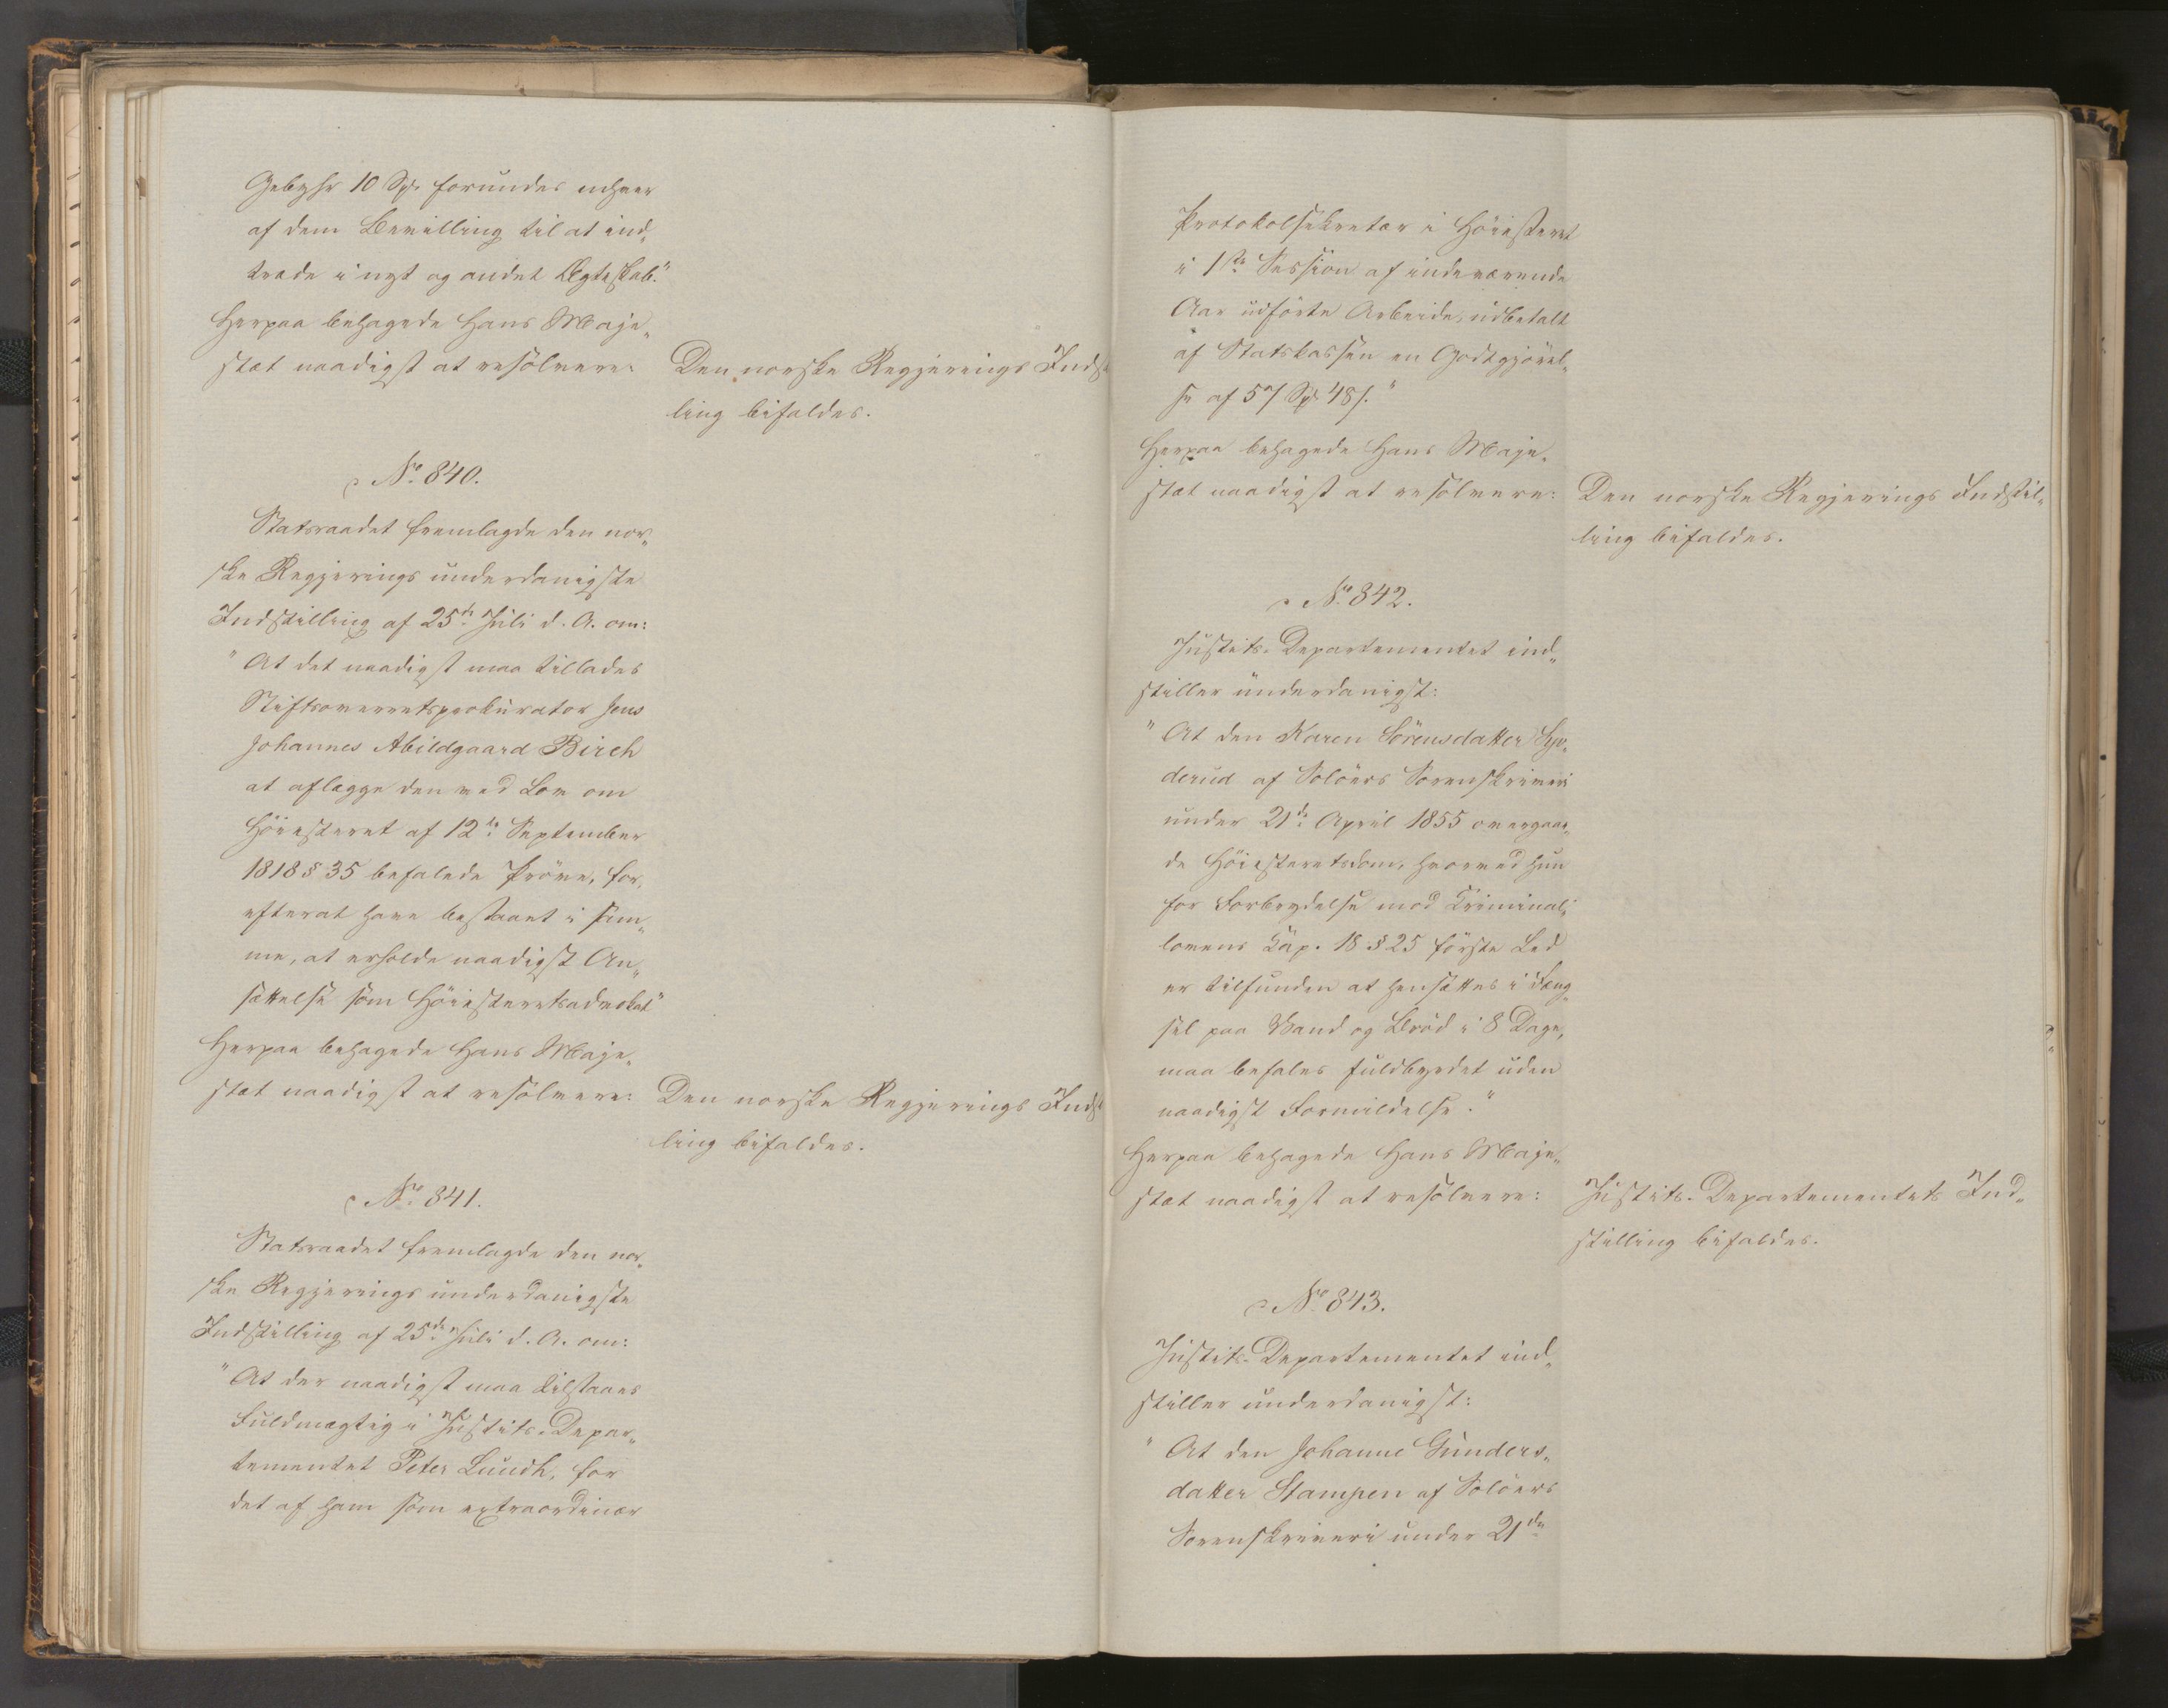 Gebyhr 10 Spd. forundes enhver
af dem Bevilling til at ind„
træde i nyt og andet Ægteskab."
Herpaa behagede Hans Maje„
stæt naadigst at resolvere:
Den norske Regjerings Indst
ling bifaldes.
No. 840.
Statsraadet fremlagde den nor„
ske Regjerings underdanigste
Indstilling af 25de Juli d. A. om:
"At det naadigst maa tillades
Stiftsoverretsprokurator Jens
Johannes Abildgaard Birch
at aflægge den ved Lov om
Höiesteret af 12te September
1818 § 35 befalede Pröve, for,
efter at have bestaaet i sam„
me, at erholde naadigst An„
sættelse som Höiesteretsadvokat"
Herpaa behagede Hans Maje„
stæt naadigst at resolvere:
Den norske Regjerings Indst
ling bifaldes.
No. 841.
Statsraadet fremlagde den nor„
ske Regjerings underdanigste
Indstilling af 25de Juli d. A. om:
"At der naadigst maa tilstaaes
Fuldmægtig i Justits-Depar„
tementet Peter Lundh, for
det af ham som extraordinær
Protokolsekretær i Höiesteret
i 1ste Session af indeværende
Aar udförte Arbeide, udbetalt
af Statskassen en Godtgjörel„
se af 57 Spd. 48 s."
Herpaa behagede Hans Maje„
stæt naadigst at resolvere:
Den norske Regjerings Indstil„
ling bifaldes.
No. 842.
Justits-Departementet ind„
stiller underdanigst:
"At den Karen Sörensdatter Sy„
derud af Solöers Sorenskriveri
under 21de April 1855 overgaae„
de Höiesteretsdom, hvorved hun
for Forbrydelse mod Criminal„
lovens Cap. 18 § 25 förste Led
er tilfunden at hensættes i Fæng„
sel paa Vand og Bröd i 8 Dage,
maa befales fuldbyrdet uden
naadigst Formildelse."
Herpaa behagede Hans Maje„
stæt naadigst at resolvere:
Justits-Departementets Ind„
stilling bifaldes.
No. 843.
Justits-Departementet ind„
stiller underdanigst:
"At den Johanne Gunders„
datter Stampen af Solöers
Sorenskriveri under 21de